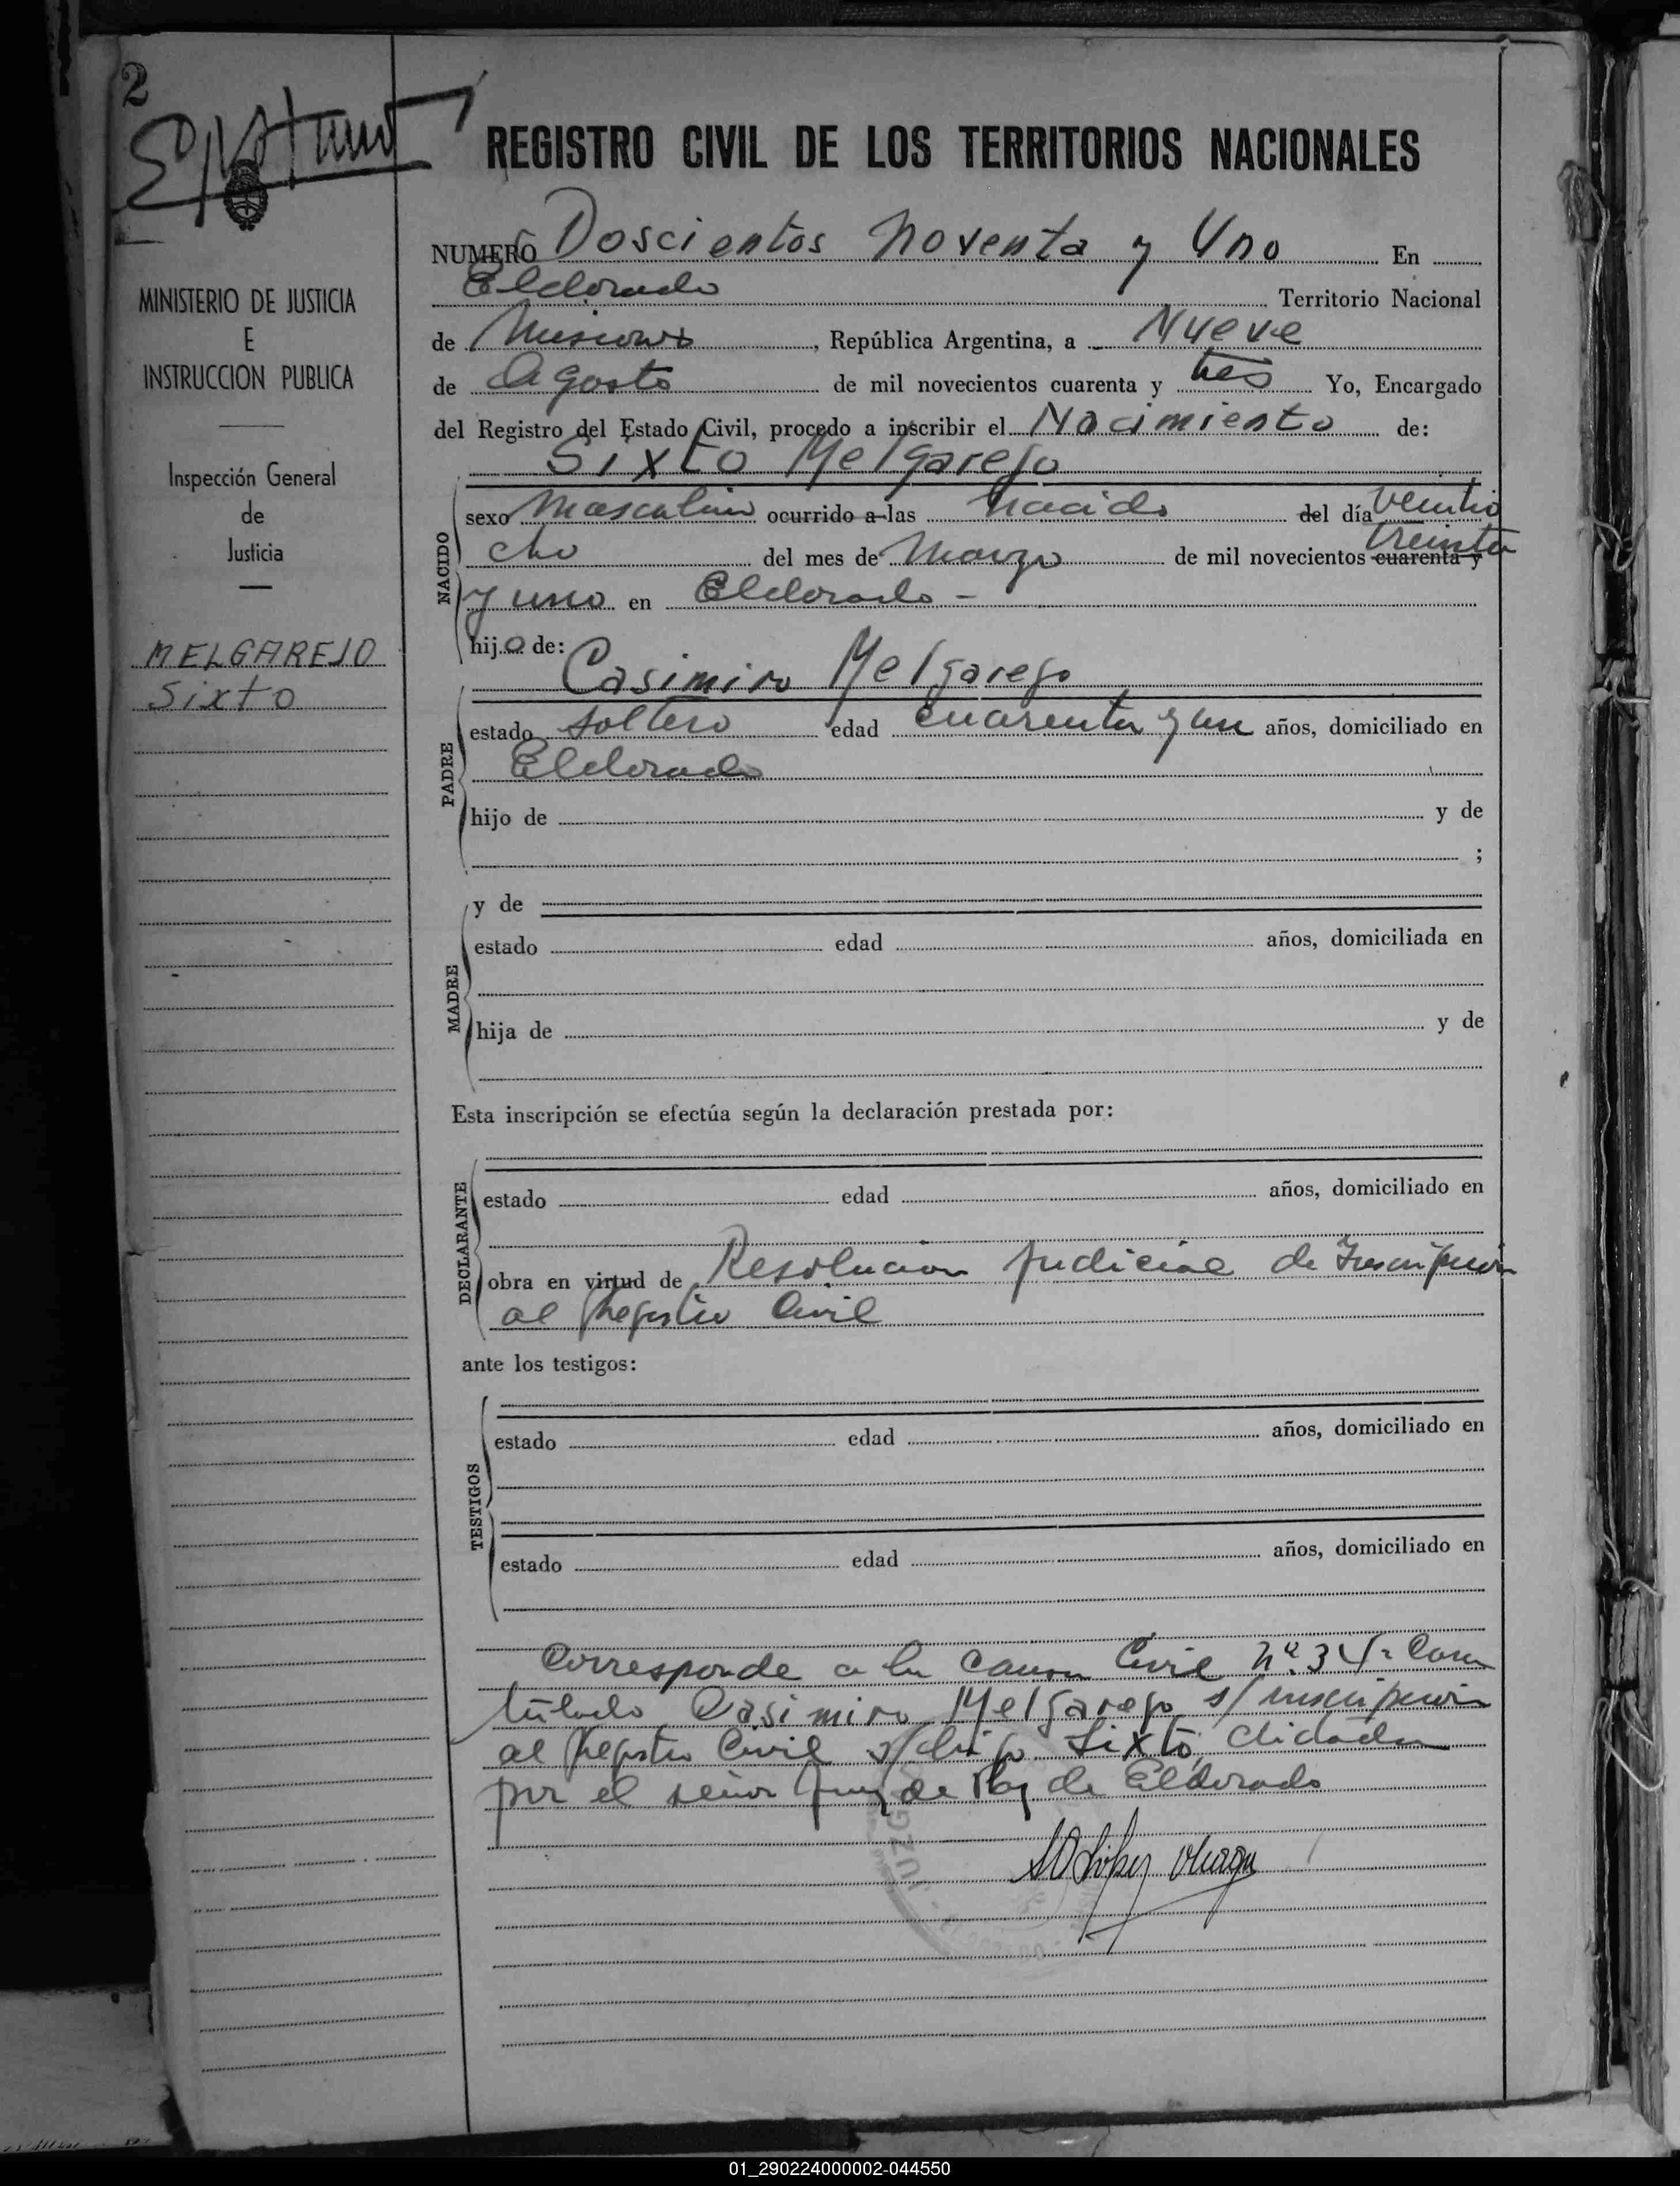 2
REGISTRO CIVIL DE LOS TERRITORIOS NACIONALES
MINISTERIO DE JUSTICIA
E
INSTRUCCION PUBLICA
Inspección General
de
Justicia
MELGAREJO
Sixto
NUMERO Doscientos noventa y Uno En
Eldorado Territorio Nacional
de Misiones, República Argentina, a Nueve
de Agosto de mil novecientos cuarenta y tres Yo, Encargado
del Registro del Estado Civil, procedo a inscribir el Nacimiento de:
Sixto Melgarejo
NACIDO
sexo Masculino ocurrido a las nacido del día veintio
cho del mes de Marzo de mil novecientos cuarenta y treinta
y uno en Eldorado -
hijo de:
Casimiro Melgarejo
PADRE
estado soltero edad cuarenta y un años, domiciliado en
Eldorado
hijo de y de
;
MADRE
y de
estado edad años, domiciliada en
hija de y de
Esta inscripción se efectúa según la declaración prestada por:
DECLARANTE
estado edad años, domiciliado en
obra en virtud de Resolucion judicial de Inscripcion
al Registro Civil
ante los testigos:
TESTIGOS
estado edad años, domiciliado en
estado edad años, domiciliado en
Corresponde a la causa Civil nº 34- Cara
tulado Casimiro Melgarejo s/ inscripcion
al Registro Civil s/ hijo Sixto, dictada
por el señor Juez de Paz de Eldorado
JUZG
01_290224000002-044550